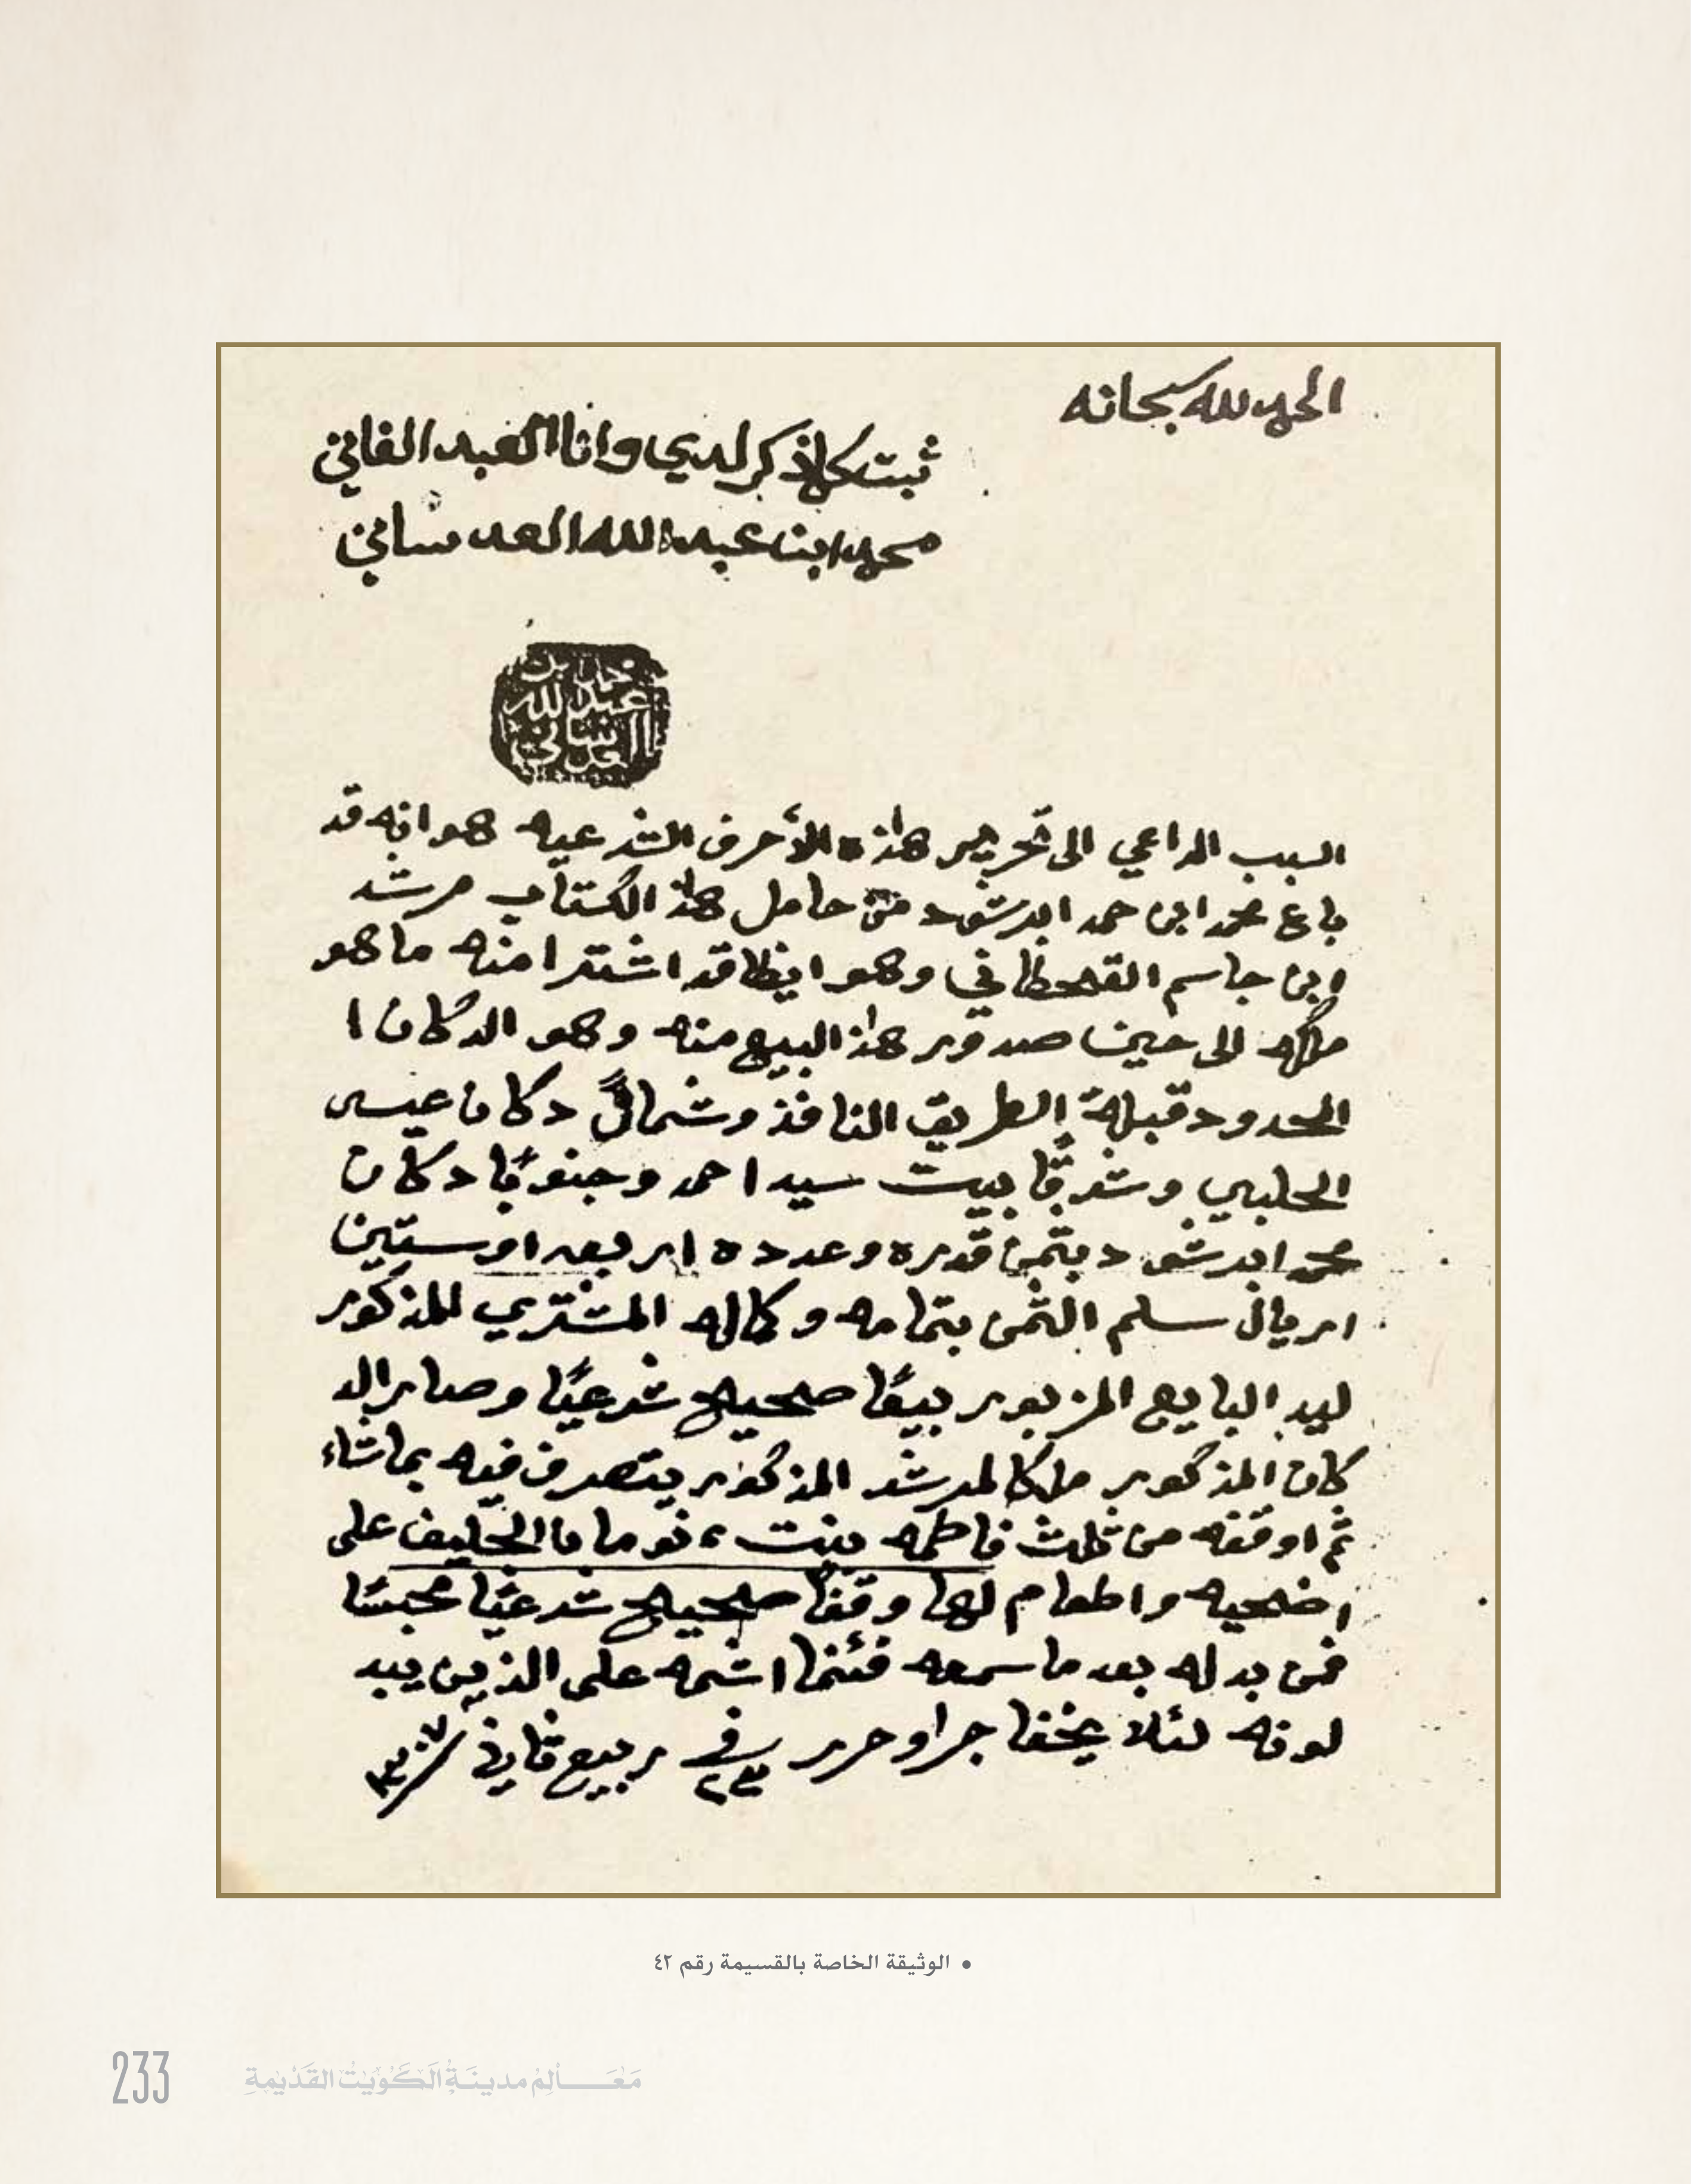 الحمد لله سبحانه
ثبت كلما ذكر لدي وانا العبد الفاني
محمد ابن عبد الله العدساني
محمد بن
عبد الله
العدساني
السبب الداعي الى تحرير هذه الأحرف الشرعيه هو انه قد
باع محمد ابن حمد ابرشود من حامل هذا الكتاب مرشد
ابن جاسم القحطاني وهو ايظا قد اشترا منه ما هو
ملكه الى حين صدور هذا البيع منه وهو الدكان ا
المحدود قبلة الطريق النافذ وشمالًا دكان عيسى
الحليبي وشرقًا بيت سيد احمد وجنوبًا دكان
محمد ابرشود بثمن قدره وعدده اربعه اوستين
اريال سلم الثمن بتمامه وكماله المشتري المذكور
ليد البايع المزبور بيعًا صحيح شرعيًا وصار الد
كان المذكور ملكا لمرشد المذكور يتصرف فيه بما شاء
ثم اوقفه من ثلث فاطمه بنت نوما بالخليف على
اضحيه واطعام لها وقفًا صحيح شرعيًا محبسًا
فمن بدله بعد ما سمعه فئنما اثمه على الذين يبد
لونه لئلا يخفا جرا وحرر في ٢٣ ربيع ثاني
• الوثيقة الخاصة بالقسيمة رقم ٤٢
233 مَعَالِم مدينَةِ الكُوَيْت القَدْيمةِ